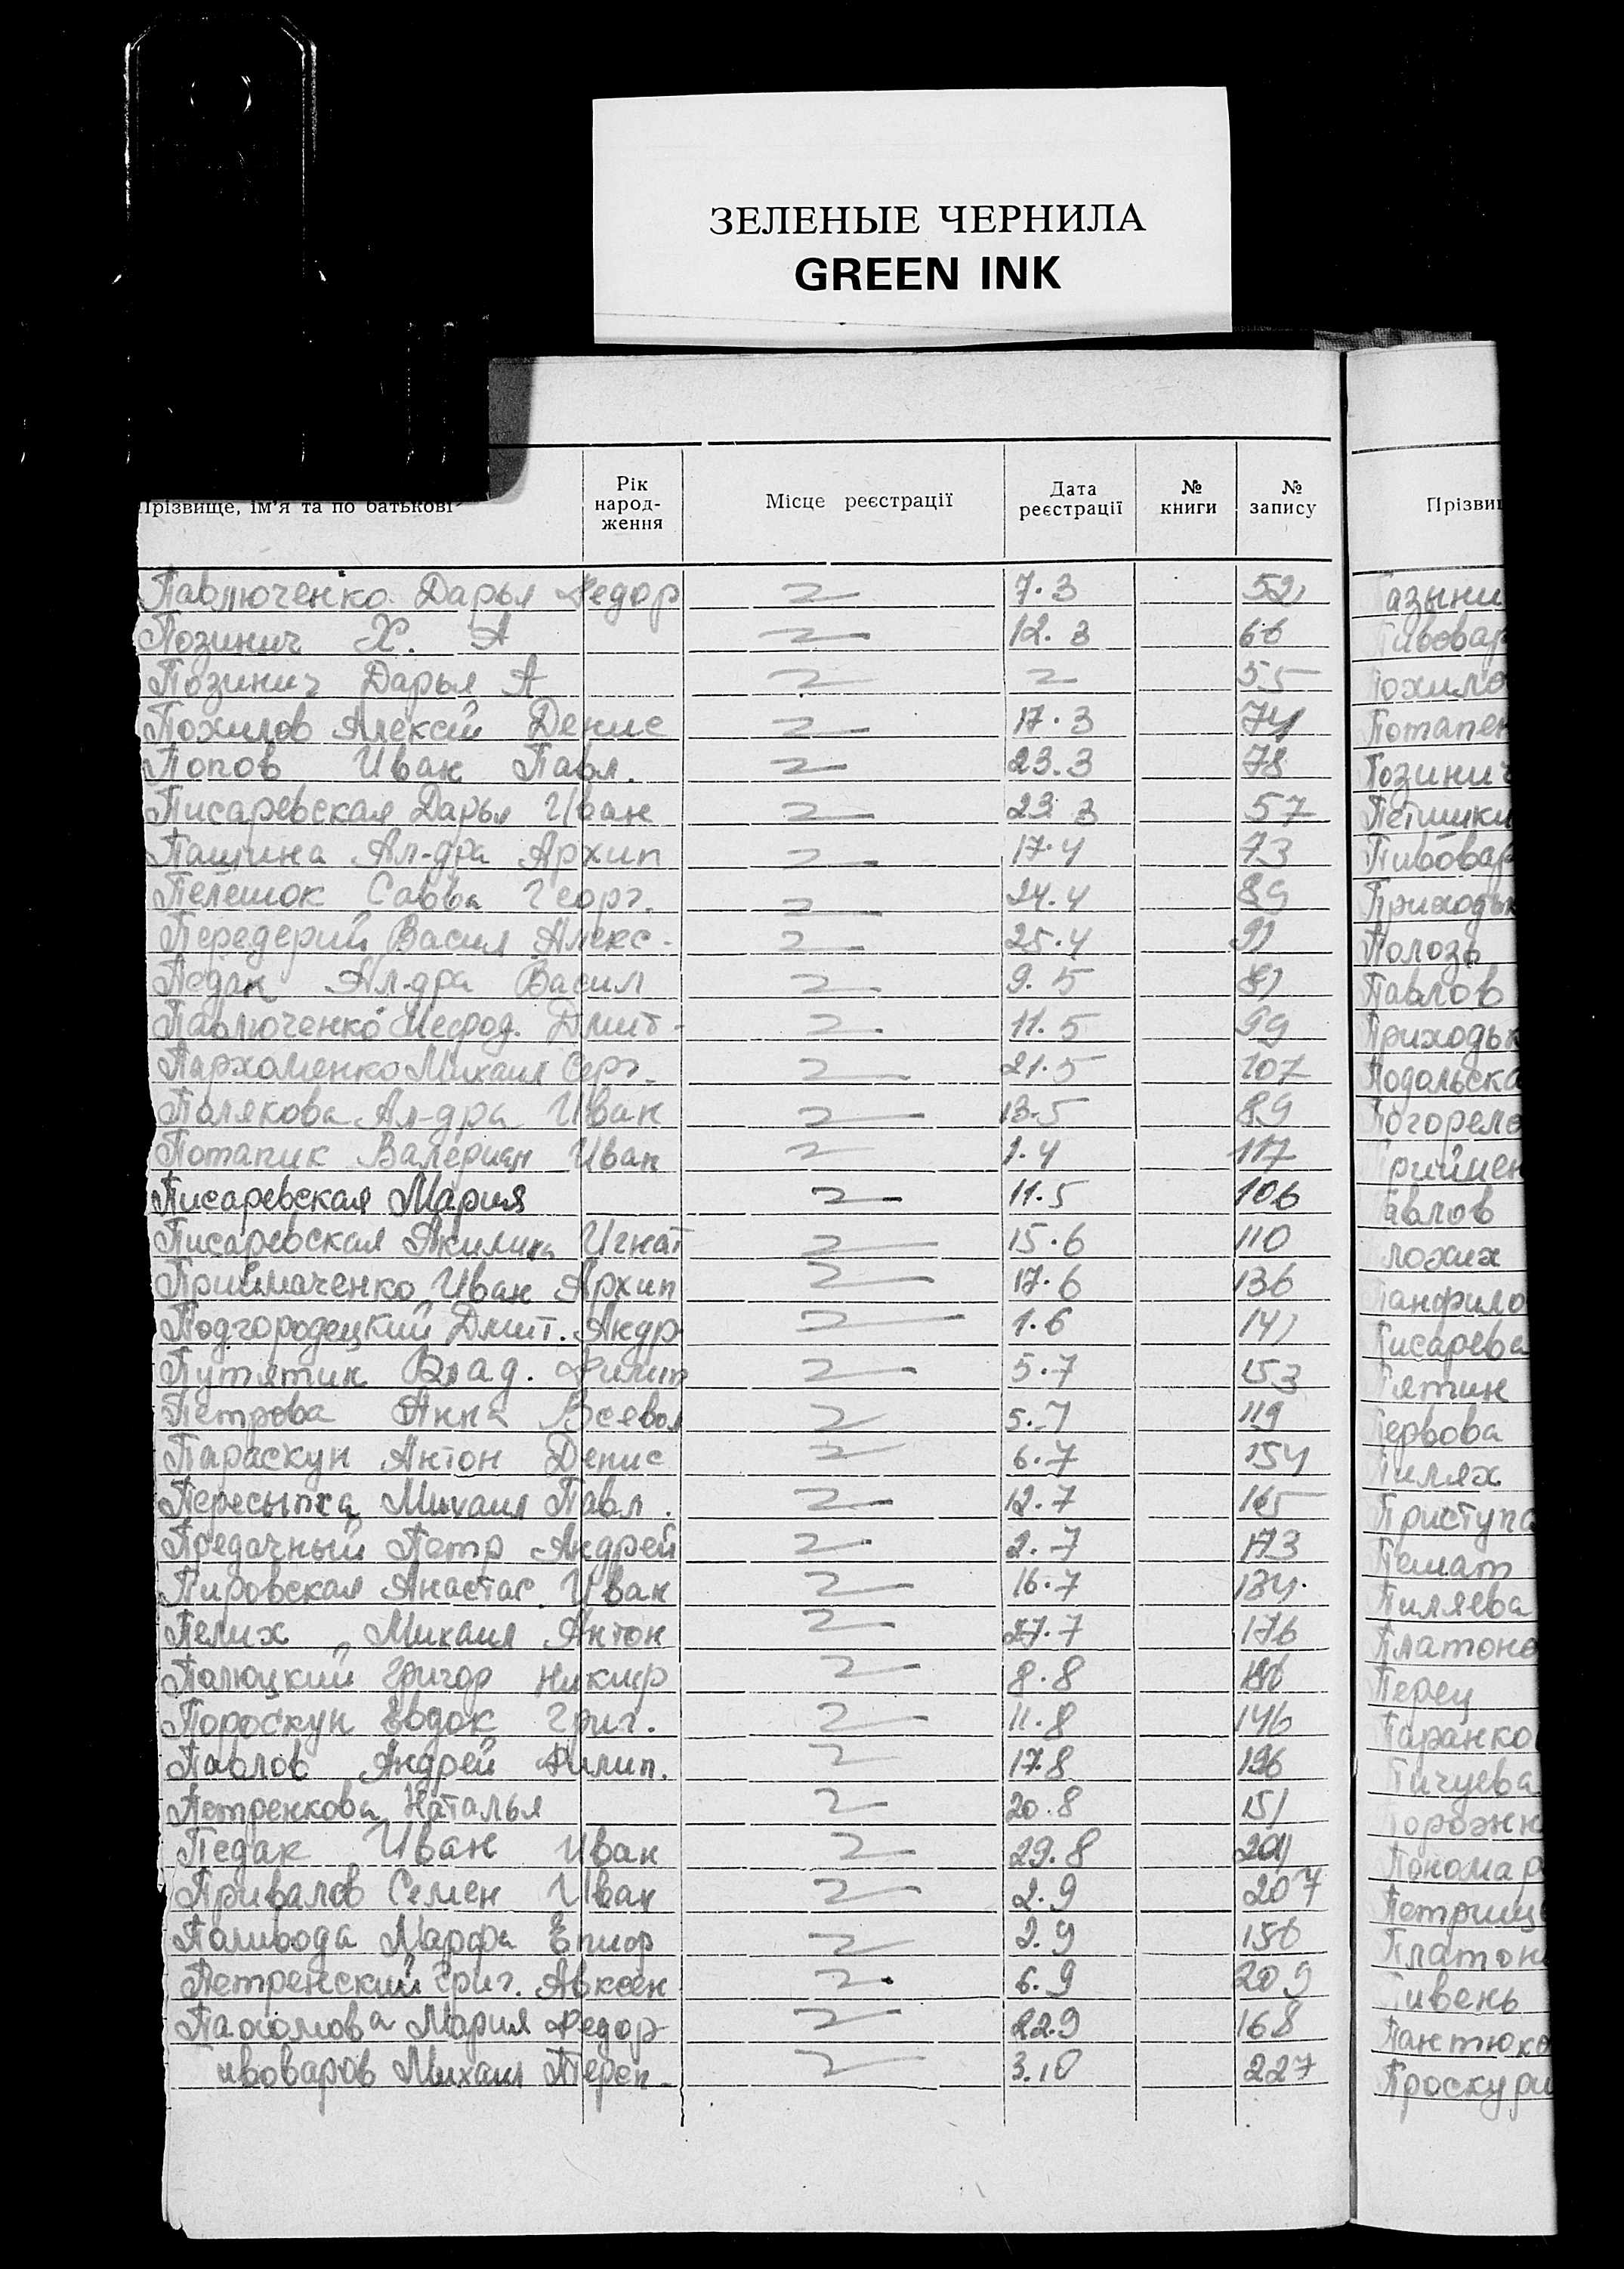 ЗЕЛЕНЫЕ ЧЕРНИЛА
GREEN INK
Прізвище, ім'я та по батькові Рік народ- ження Місце реєстрації Дата реєстрації № книги № запису
Павлюченко Дарья Федор 7.3 52
Позинич Х. А 12.3 66
Позинич Дарья А 55
Похилов Алексей Денис 17.3 74
Попов Иван Павл. 23.3 78
Писаревская Дарья Иван 23 3 57
Пащина Ал-дра Архип 17.4 73
Пелешок Савва Георг. 24.4 89
Передерий Васил Алекс. 25.4 91
Педак Ал-дра Васил 9.5 81
Павлюченко Мефод. Дмит. 11.5 99
Пархоменко Михаил Серг. 21.5 107
Полякова Ал-дра Иван 13.5 89
Потапик Валериан Иван 1.4 117
Писаревская Мария 11.5 106
Писаревская Акилина Игнат 15.6 110
Приймаченко Иван Архип 17.6 136
Подгородецкий Дмит. Андр 1.6 141
Путятин Влад. Филип 5.7 153
Петрова Анна Всевол 5.7 119
Параскун Антон Денис 6.7 154
Пересыпка Михаил Павл. 12.7 165
Предачный Петр Андрей 2.7 173
Пировская Анастас. Иван 16.7 134.
Пелих Михаил Антон 27.7 176
Палюцкий Григор Никиф 8.8
Пороскун Евдок Григ. 11.8 146
Павлов Андрей Филип. 17.8 196
Петренкова Наталья 20.8 151
Педак Иван Иван 29.8 201
Привалов Семен Иван 2.9 207
Паливода Марфа Епиф 2.9 156
Петренский Григ. Авксен 6.9 209
Пахомова Мария Федор 22.9 168
ивоваров Михаил Терен. 3.10 227
Прізви
азыни
Пивовар
Похило
Потапен
Позинич
Петишки
Пивовар
Приходьк
Полозь
Павлов
Приходьк
Подольска
Погорело
Приймен
авлов
лохих
Панфило
Писарева
Пятин
Первова
Пилях
Приступа
Пешат
Пиляева
Платоно
Перец
Паранко
Пичуева
Порожн
Пономар
Петрище
Платон
Пивень
Пантюхо
Проскури